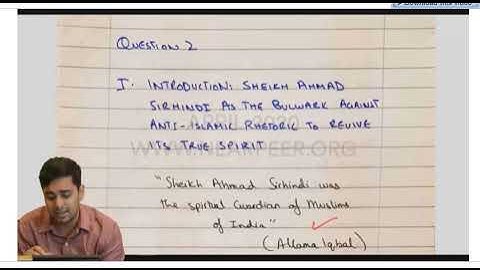 Download this video
QUESTION 2
I. INTRODUCTION: SHEIKH AHMAD
SIRHINDI AS THE BULWARK AGAINST
ANTI-ISLAMIC RHETORIC TO REVIVE
ITS TRUE SPIRIT
APRIL 2020
WWW.NEARPEER.ORG
"Sheikh Ahmad Sirhindi was
the spirtual Guardian of Muslims
of India"
(Allama Iqbal)